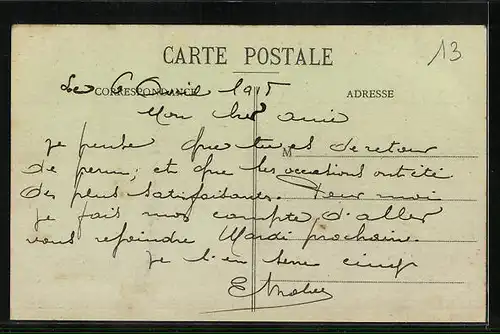 CARTE POSTALE
13
Le 6 Avril 1915
CORRESPONDANCE
ADRESSE
Mon cher ami
je pense que tu es de retour
M
de perm, et que les occations ont été
des plus satisfaisantes. Pour moi
je fais mon compte d'aller
vous rejoindre Mardi prochain.
Je t'en serre cinq